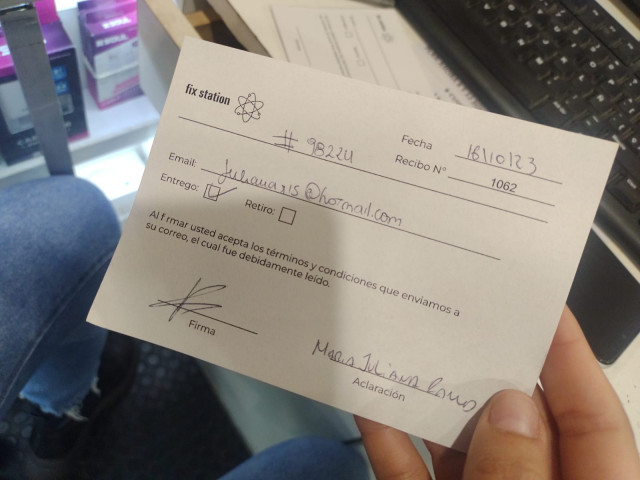 fix station
# 98224
Fecha 18/10/23
Recibo N° 1062
Email: julianars@hotmail.com
Entrego: Retiro:
Al f rmar usted acepta los términos y condiciones que enviamos a
su correo, el cual fue debidamente leído.
Firma
Maria Juliana Ramos
Aclaración